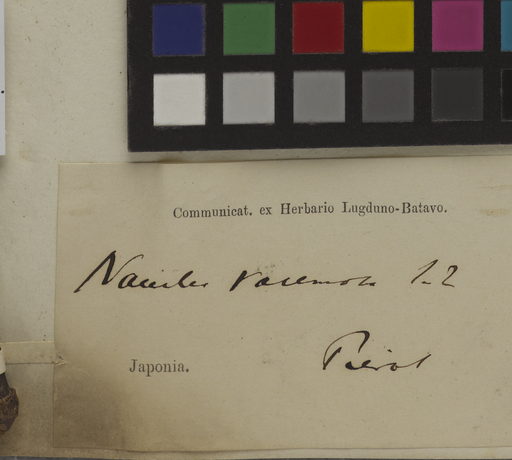 Communicat. ex Herbario Lugduno-Batavo.
Nauclea racemosa S.Z
Japonia.
Pierot